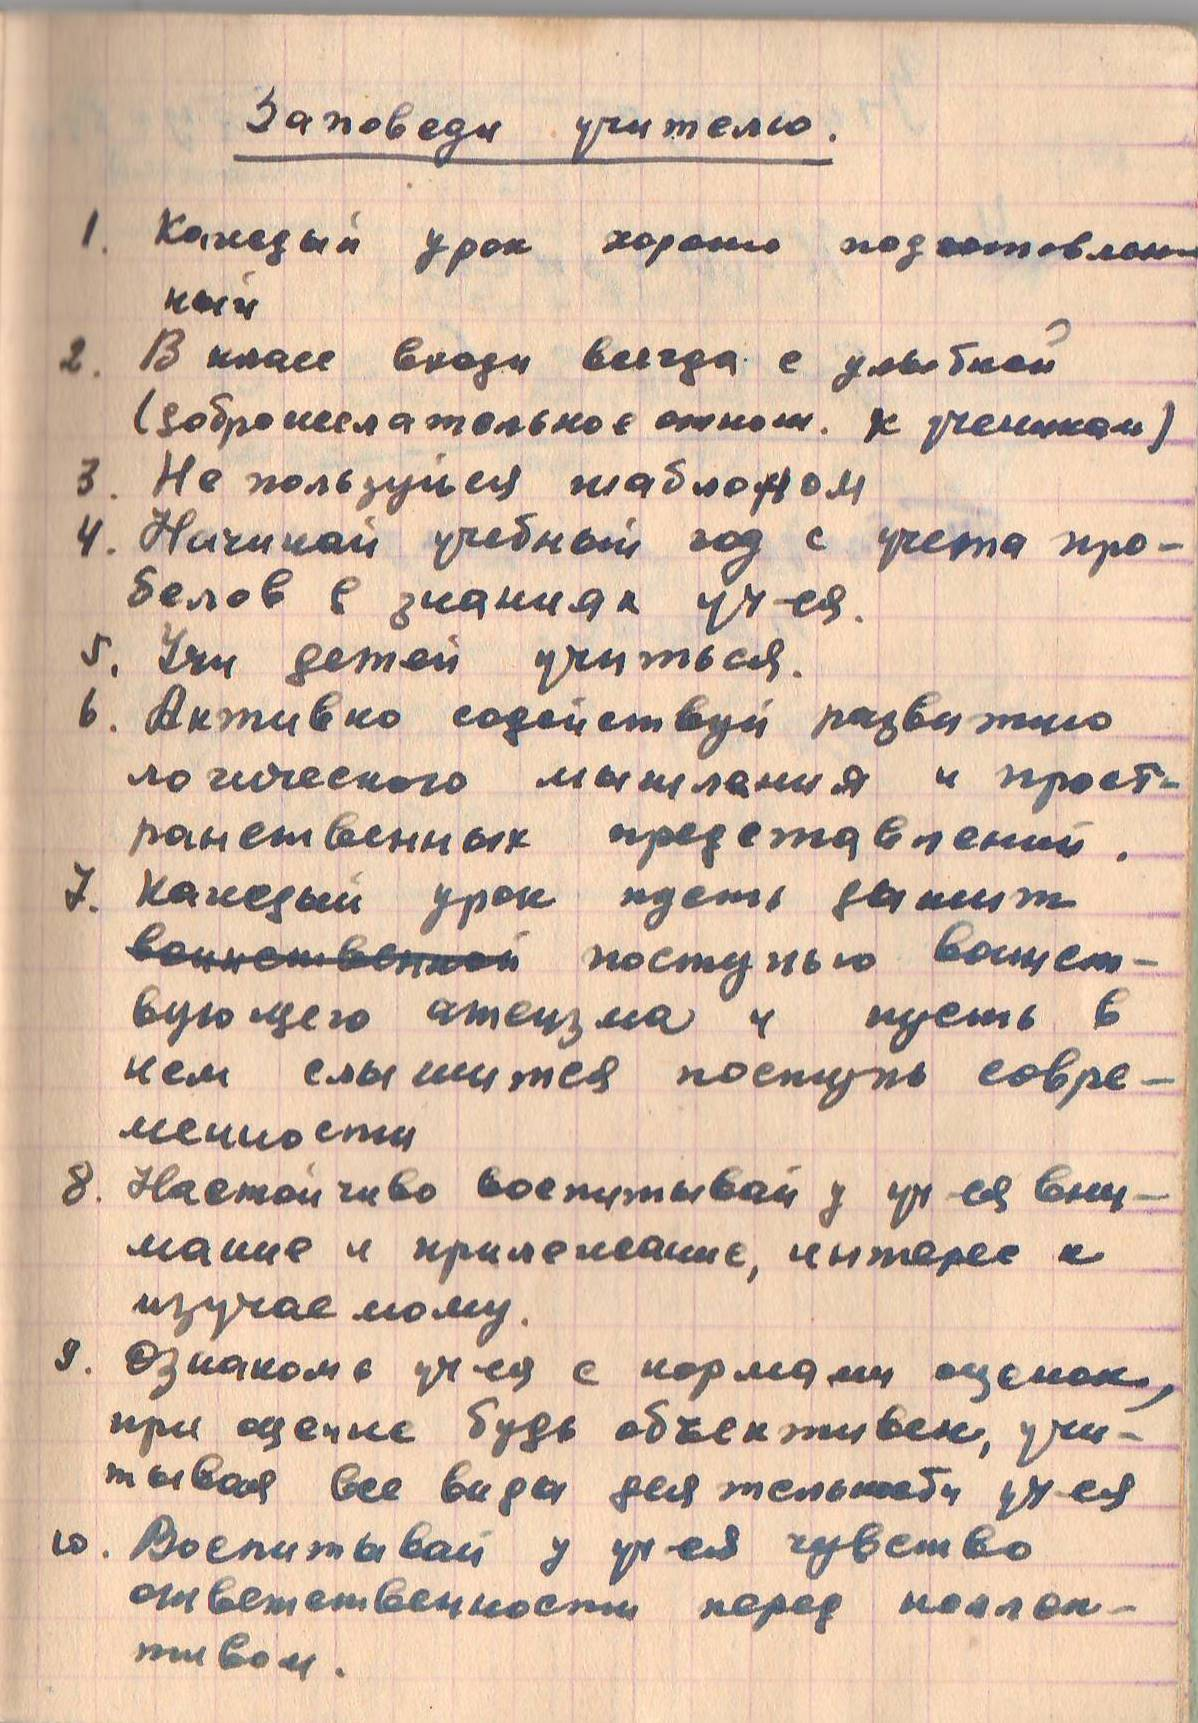 Заповеди учителю.
1. Каждый урок хорошо подготовлен-
ный
2. В класс входи всегда с улыбкой
(доброжелательное отнош. к ученикам)
3. Не пользуйся шаблоном
4. Начинай учебный год с учета про-
белов в знаниях уч-ся.
5. Учи детей учиться.
6. Активно содействуй развитию
логического мышления и прост-
ранственных представлений.
7. Каждый урок пусть дышит
воинственной поступью воинст-
вующего атеизма и пусть в
нем слышится поступь совре-
менности
8. Настойчиво воспитывай у уч-ся вни-
мание и прилежание, интерес к
изучаемому.
9. Ознакомь уч-ся с нормами оценок,
при оценке будь объективен, учи-
тывая все виды деятельности уч-ся
10. Воспитывай у уч-ся чувство
ответственности перед коллек-
тивом.